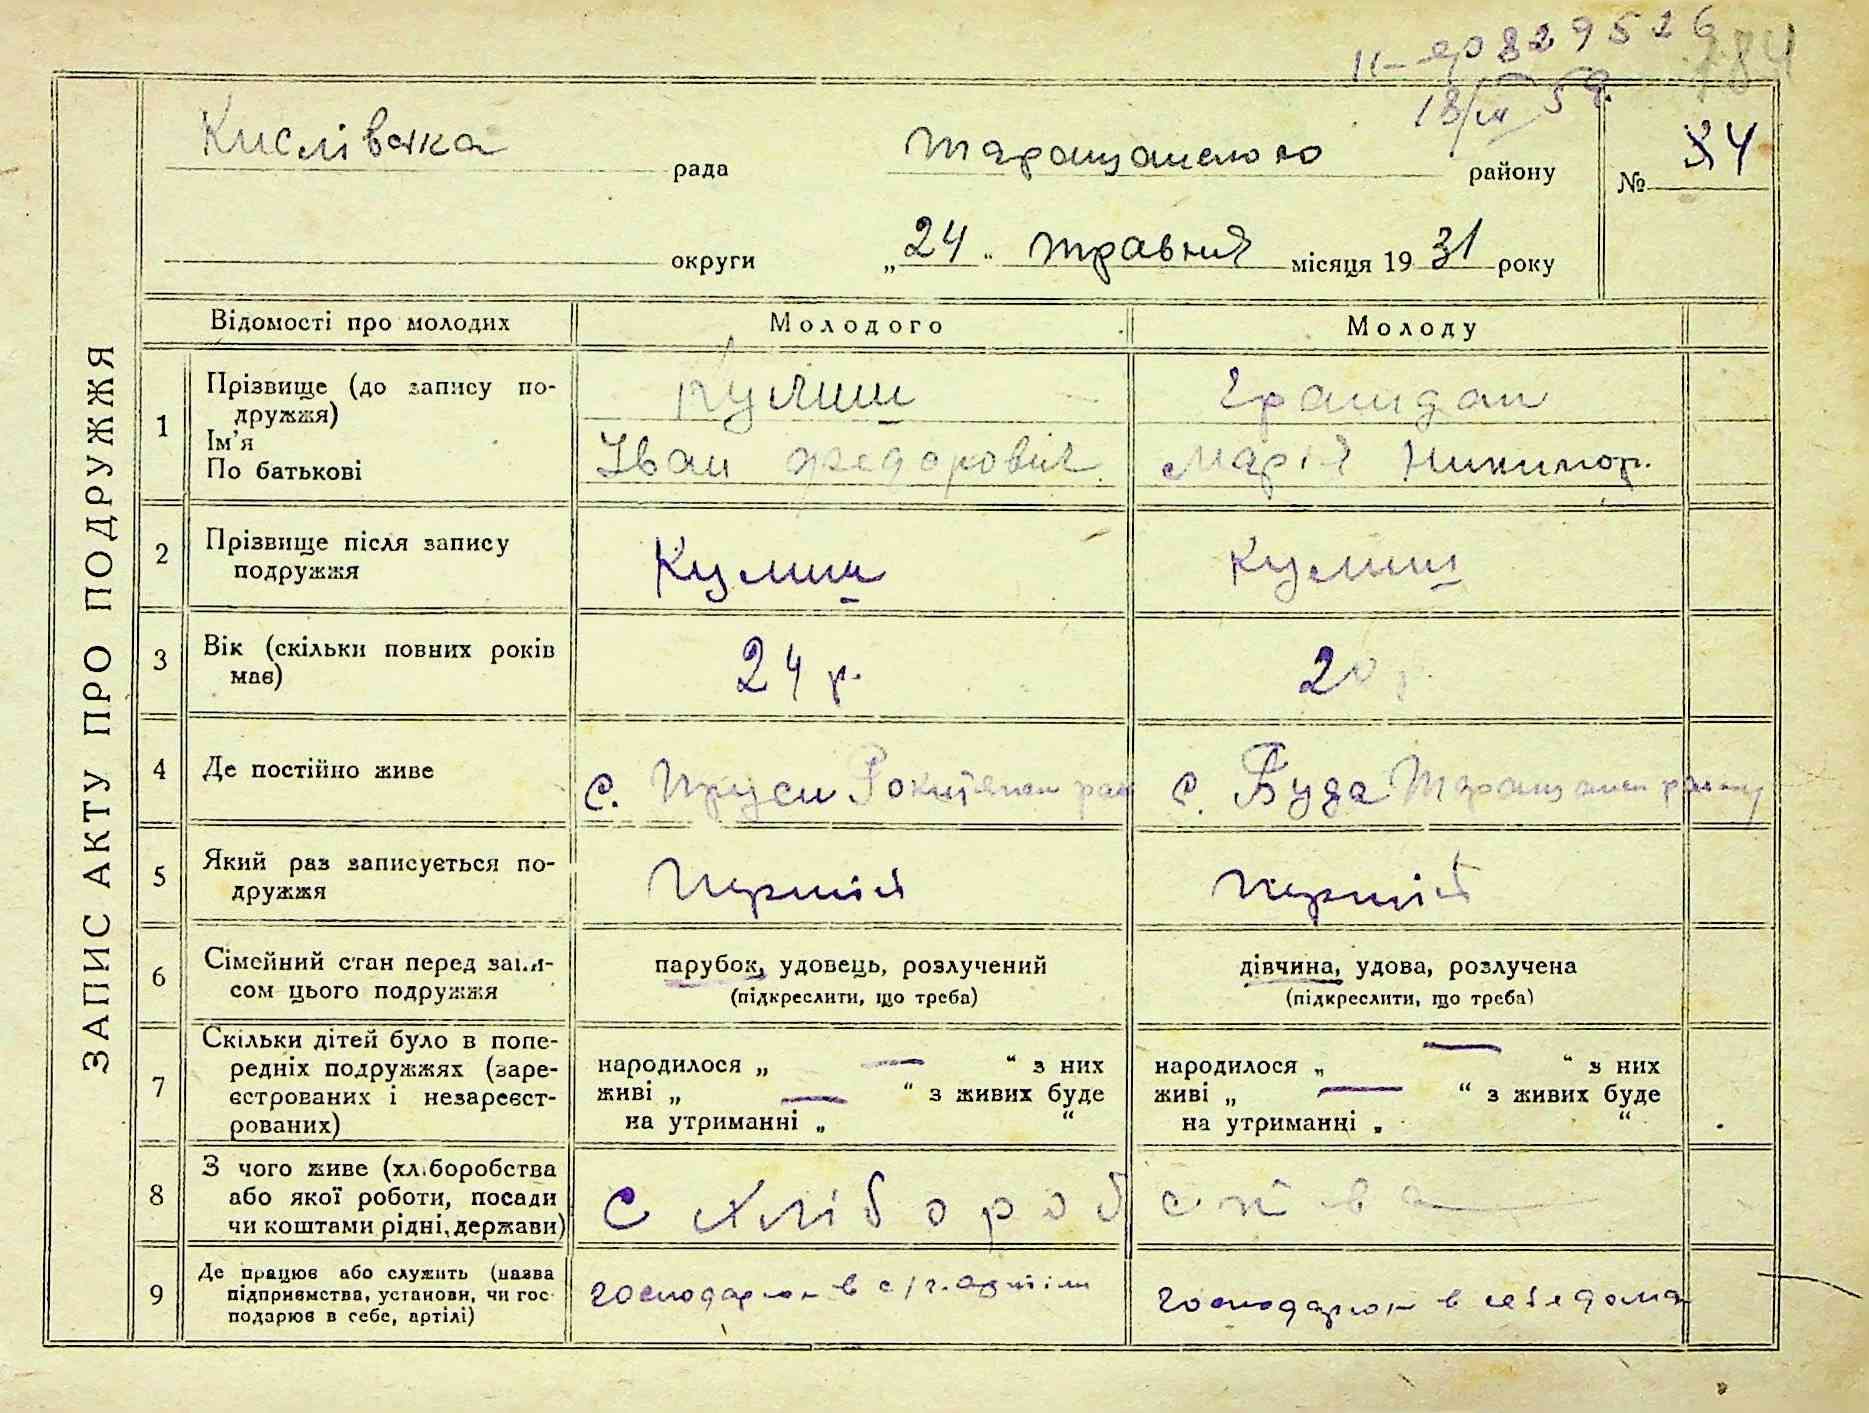 829526
18/III 59.
184
Кислівська рада Таращанського району № 84
округи „24" травня місяця 1931 року
ЗАПИС АКТУ ПРО ПОДРУЖЖЯ
Відомості про молодих Молодого Молоду
1 Прізвище (до запису по-
дружжя)
Ім'я
По батькові
Кулиш
Іван Федорович
Грамдан
Марія Никифор.
2 Прізвище після запису
подружжя
Кулиш Кулиш
3 Вік (скільки повних років
має)
24 р. 20 р.
4 Де постійно живе
с. Пруси Рокитянськ рай с. Буда Таращанськ району
5 Який раз записується по-
дружжя
Перший Перший
6 Сімейний стан перед запи-
сом цього подружжя
парубок, удовець, розлучений
(підкреслити, що треба)
дівчина, удова, розлучена
(підкреслити, що треба)
7 Скільки дітей було в попе-
редніх подружжях (заре-
єстрованих і незареєст-
рованих)
народилося „ — " з них
живі „ — " з живих буде
на утриманні „ "
народилося „ — " з них
живі „ — " з живих буде
на утриманні „ "
8 З чого живе (хліборобства
або якої роботи, посади
чи коштами рідні, держави)
С хліборобства
9 Де працює або служить (назва
підприємства, установи, чи гос-
подарює в себе, артілі)
господарює в с/г. артіли
господарює в себе дома